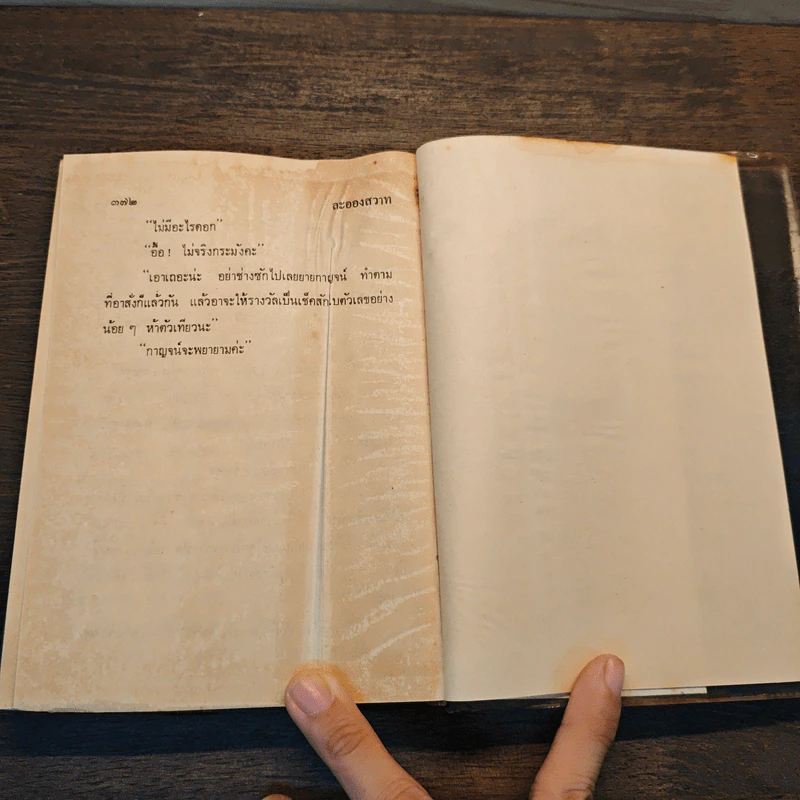 ๓๗๒ ละอองสวาท
“ไม่มีอะไรดอก”
“อื้อ! ไม่จริงกระมังคะ”
“เอาเถอะน่ะ อย่าช่างซักไปเลยยายกาญจน์ ทำตาม
ที่อาสั่งก็แล้วกัน แล้วอาจะให้รางวัลเป็นเช็คสักใบตัวเลขอย่าง
น้อย ๆ ห้าตัวเทียวนะ”
“กาญจน์จะพยายามค่ะ”